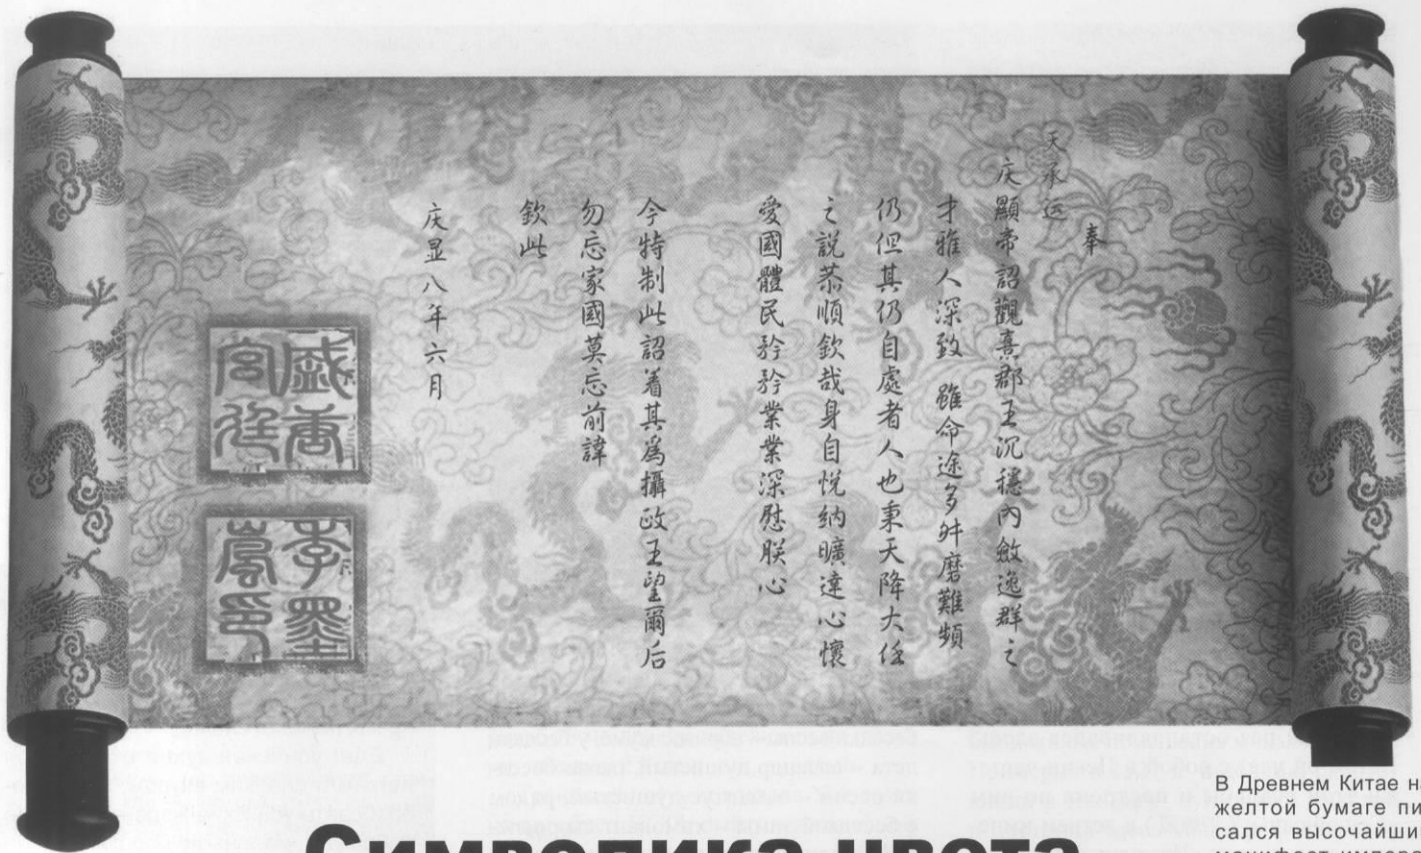 奉
天承运
庆顯帝詔觀熹郡王沉穩內斂逸群之
才雅人深致 雖命途多舛磨難頻
仍但其仍自處者人也秉天降大任
之説恭順欽哉身自悦納曠達心懷
愛國體民矜矜業業深慰朕心
今特制此詔着其爲攝政王望爾后
勿忘家國莫忘前諱
欽此
庆显八年六月
李墨
Символика цвета
В Древнем Китае н
желтой бумаге пи
сался высочайши
манифест импера